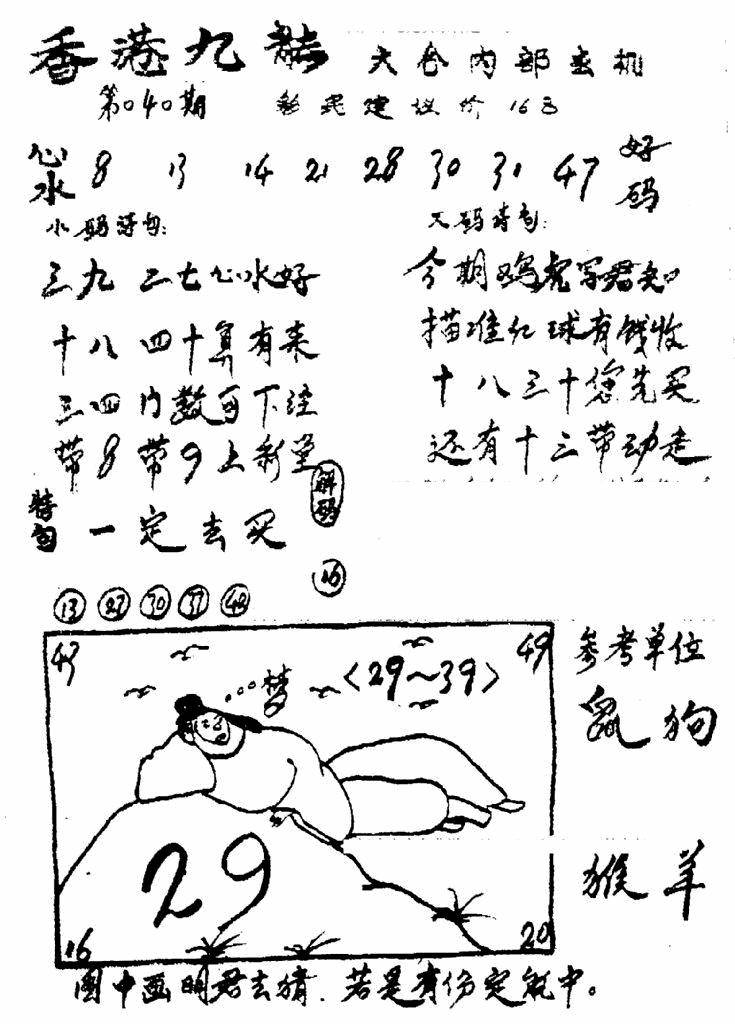 香港九龙 六合内部玄机
第040期 彩民建议价16元
心水 8 13 14 21 28 30 31 47 好码
小码诗句:
三九二七心水好
十八四十算有来
三四门数可下注
带8带9上彩堂
特句 一定去买
解码 16
大码诗句:
今期鸡虎写君知
描准红球有钱收
十八三十您先买
还有十三带动走
13 27 30 37 42
43 49
...梦 <29～39>
29
16 20
图中画明君去猜.若是有份定能中。
参考单位
鼠 狗
猴 羊